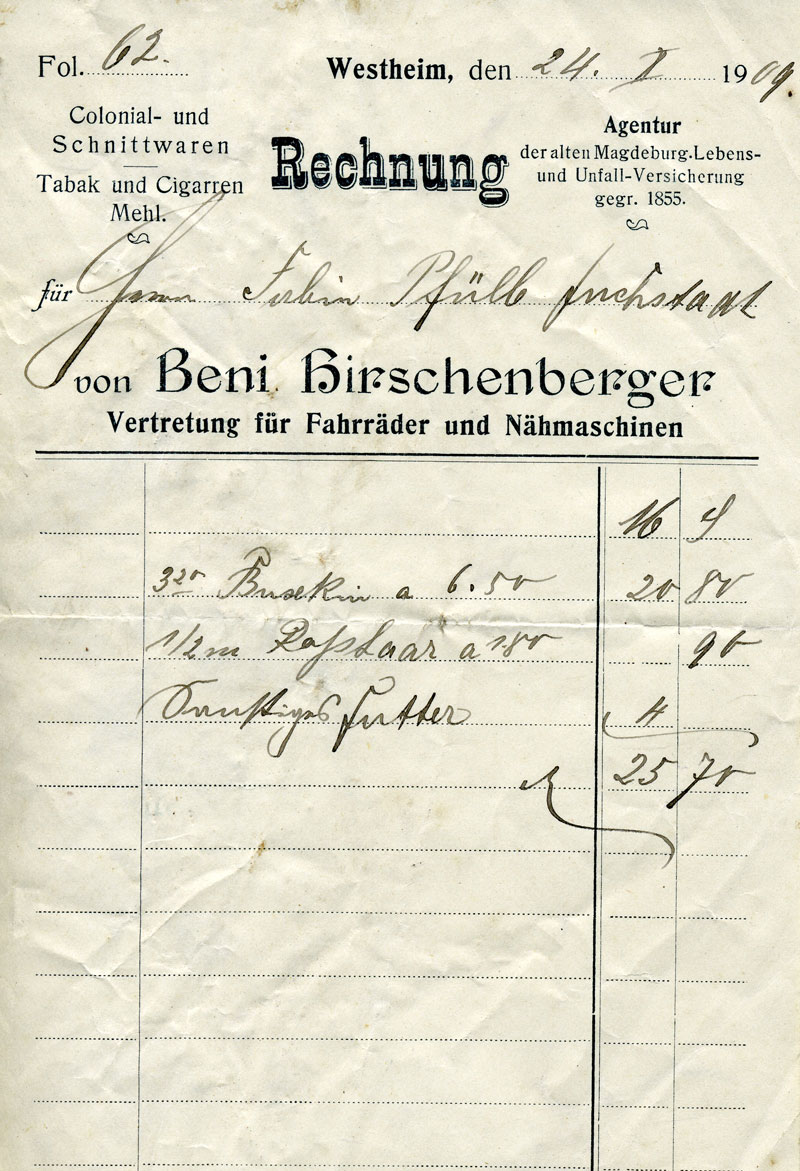 Fol. 62.
Westheim, den 24. X 1909.
Colonial- und
Schnittwaren
Tabak und Cigarren
Mehl.
Rechnung
Agentur
der alten Magdeburg.Lebens-
und Unfall-Versicherung
gegr. 1855.
für Herrn Pfülb Fuchsstadt
von Beni Hirschenberger
Vertretung für Fahrräder und Nähmaschinen
M ₰
3 20 Buxkin a 6.50 20 80
1/2 m Roßhaar a 180 90
Sonstiges Futter 4
M 25 70